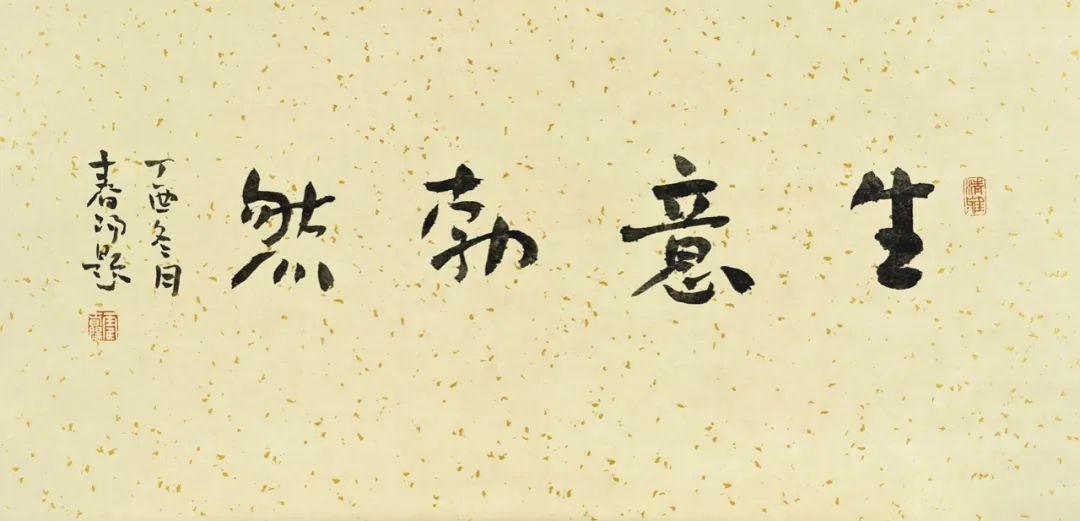 生意勃然
丁酉冬月
春陽題